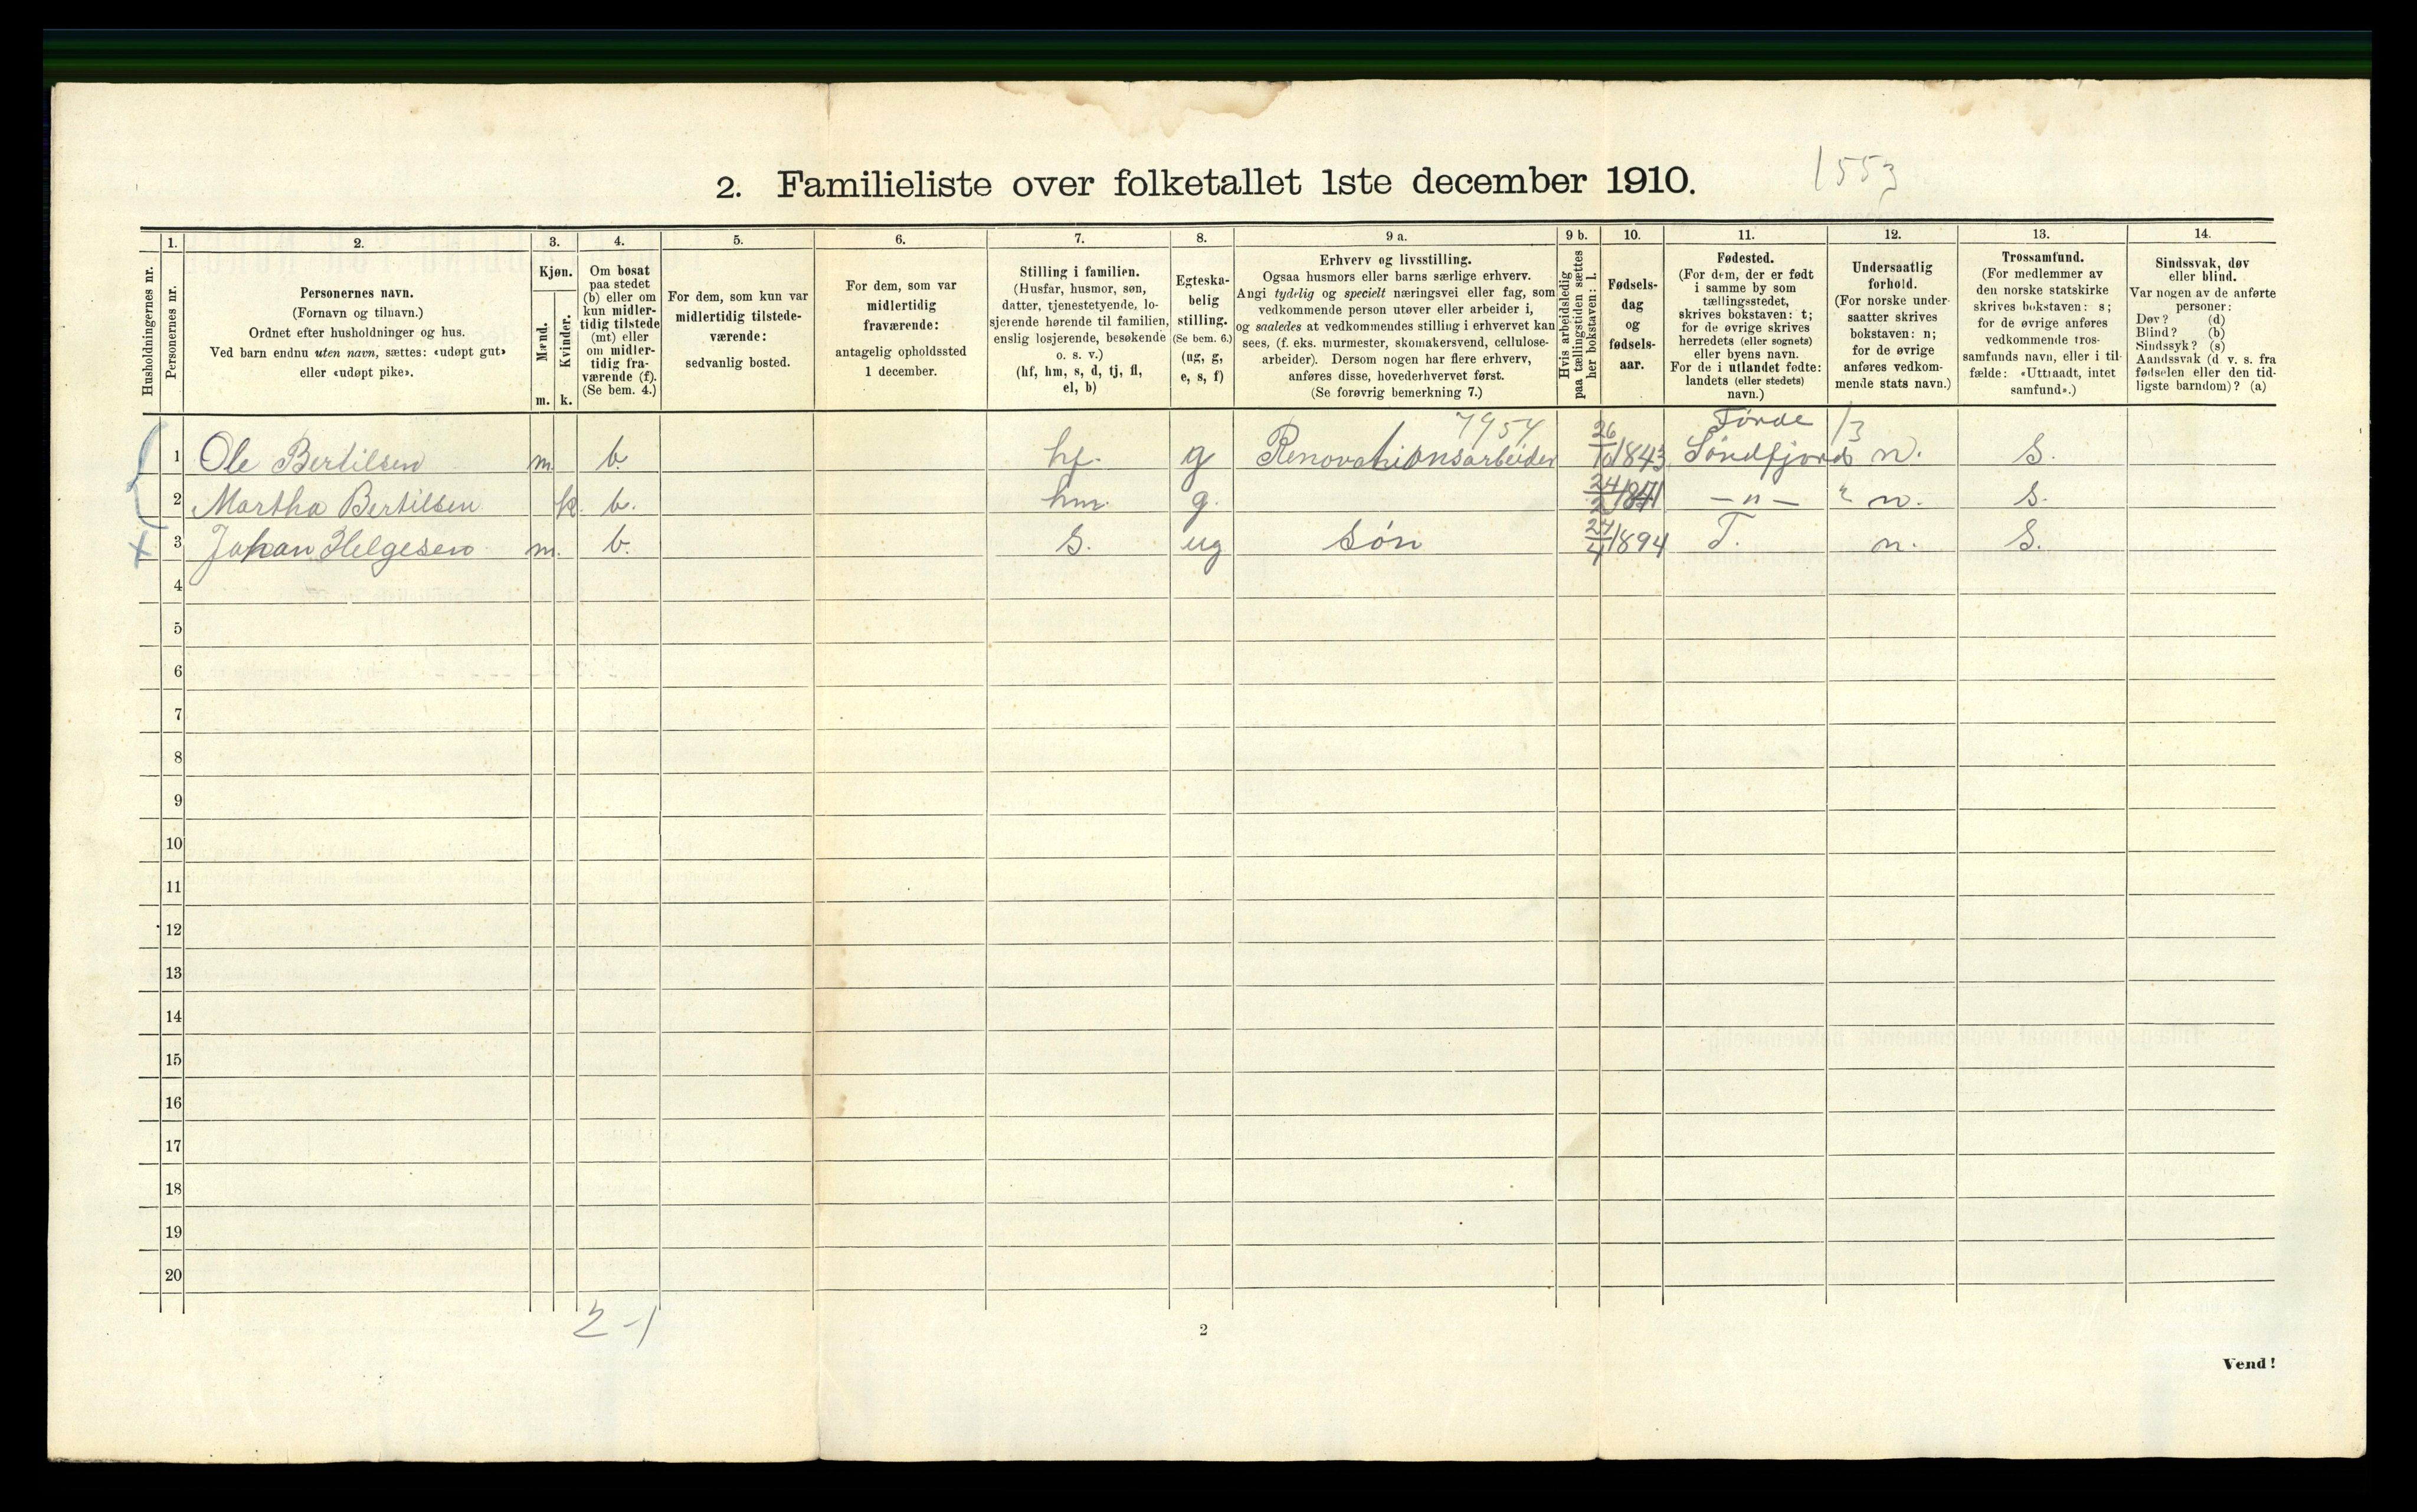 1553
2. Familieliste over folketallet 1ste december 1910.
Husholdningernes nr.
1.
Personernes nr.
2.
Personernes navn.
(Fornavn og tilnavn.)
Ordnet efter husholdninger og hus.
Ved barn endnu uten navn, sættes: «udøpt gut»
eller «udøpt pike».
3.
Kjøn.
Mænd.
Kvinder.
m. k.
4.
Om bosat
paa stedet
(b) eller om
kun midler-
tidig tilstede
(mt) eller
om midler-
tidig fra-
værende (f).
(Se bem. 4.)
5.
For dem, som kun var
midlertidig tilstede-
værende:
sedvanlig bosted.
6.
For dem, som var
midlertidig
fraværende:
antagelig opholdssted
1 december.
7.
Stilling i familien.
(Husfar, husmor, søn,
datter, tjenestetyende, lo-
sjerende hørende til familien,
enslig losjerende, besøkende
o. s. v.)
(hf, hm, s, d, tj, fl,
el, b)
8.
Egteska-
belig
stilling.
(Se bem. 6.)
(ug, g,
e, s, f)
9 a.
Erhverv og livsstilling.
Ogsaa husmors eller barns særlige erhverv.
Angi tydelig og specielt næringsvei eller fag, som
vedkommende person utøver eller arbeider i,
og saaledes at vedkommendes stilling i erhvervet kan
sees, (f. eks. murmester, skomakersvend, cellulose-
arbeider). Dersom nogen har flere erhverv,
anføres disse, hovederhvervet først.
(Se forøvrig bemerkning 7.)
9 b.
Hvis arbeidsledig
paa tællingstiden sættes
her bokstaven: l.
10.
Fødsels-
dag
og
fødsels-
aar.
11.
Fødested.
(For dem, der er født
i samme by som
tællingsstedet,
skrives bokstaven: t;
for de øvrige skrives
herredets (eller sognets)
eller byens navn.
For de i utlandet fødte:
landets (eller stedets)
navn.)
12.
Undersaatlig
forhold.
(For norske under-
saatter skrives
bokstaven: n;
for de øvrige
anføres vedkom-
mende stats navn.)
13.
Trossamfund.
(For medlemmer av
den norske statskirke
skrives bokstaven: s;
for de øvrige anføres
vedkommende tros-
samfunds navn, eller i til-
fælde: «Uttraadt, intet
samfund».)
14.
Sindssvak, døv
eller blind.
Var nogen av de anførte
personer:
Døv? (d)
Blind? (b)
Sindssyk? (s)
Aandssvak (d. v. s. fra
fødselen eller den tid-
ligste barndom)? (a)
7954 Førde 13
1 Ole Bertilsen m. b. hf. g Renovationsarbeider 26/10 1843 Søndfjord n. S.
2 Martha Bertilsen k. b. hm. g. 24/2 — " — n. S.
3 Johan Helgesen m. b. S. ug Søn 27/4 1894 T. n. S.
4
5
6
7
8
9
10
11
12
13
14
15
16
17
18
19
20
2-1
2
Vend!